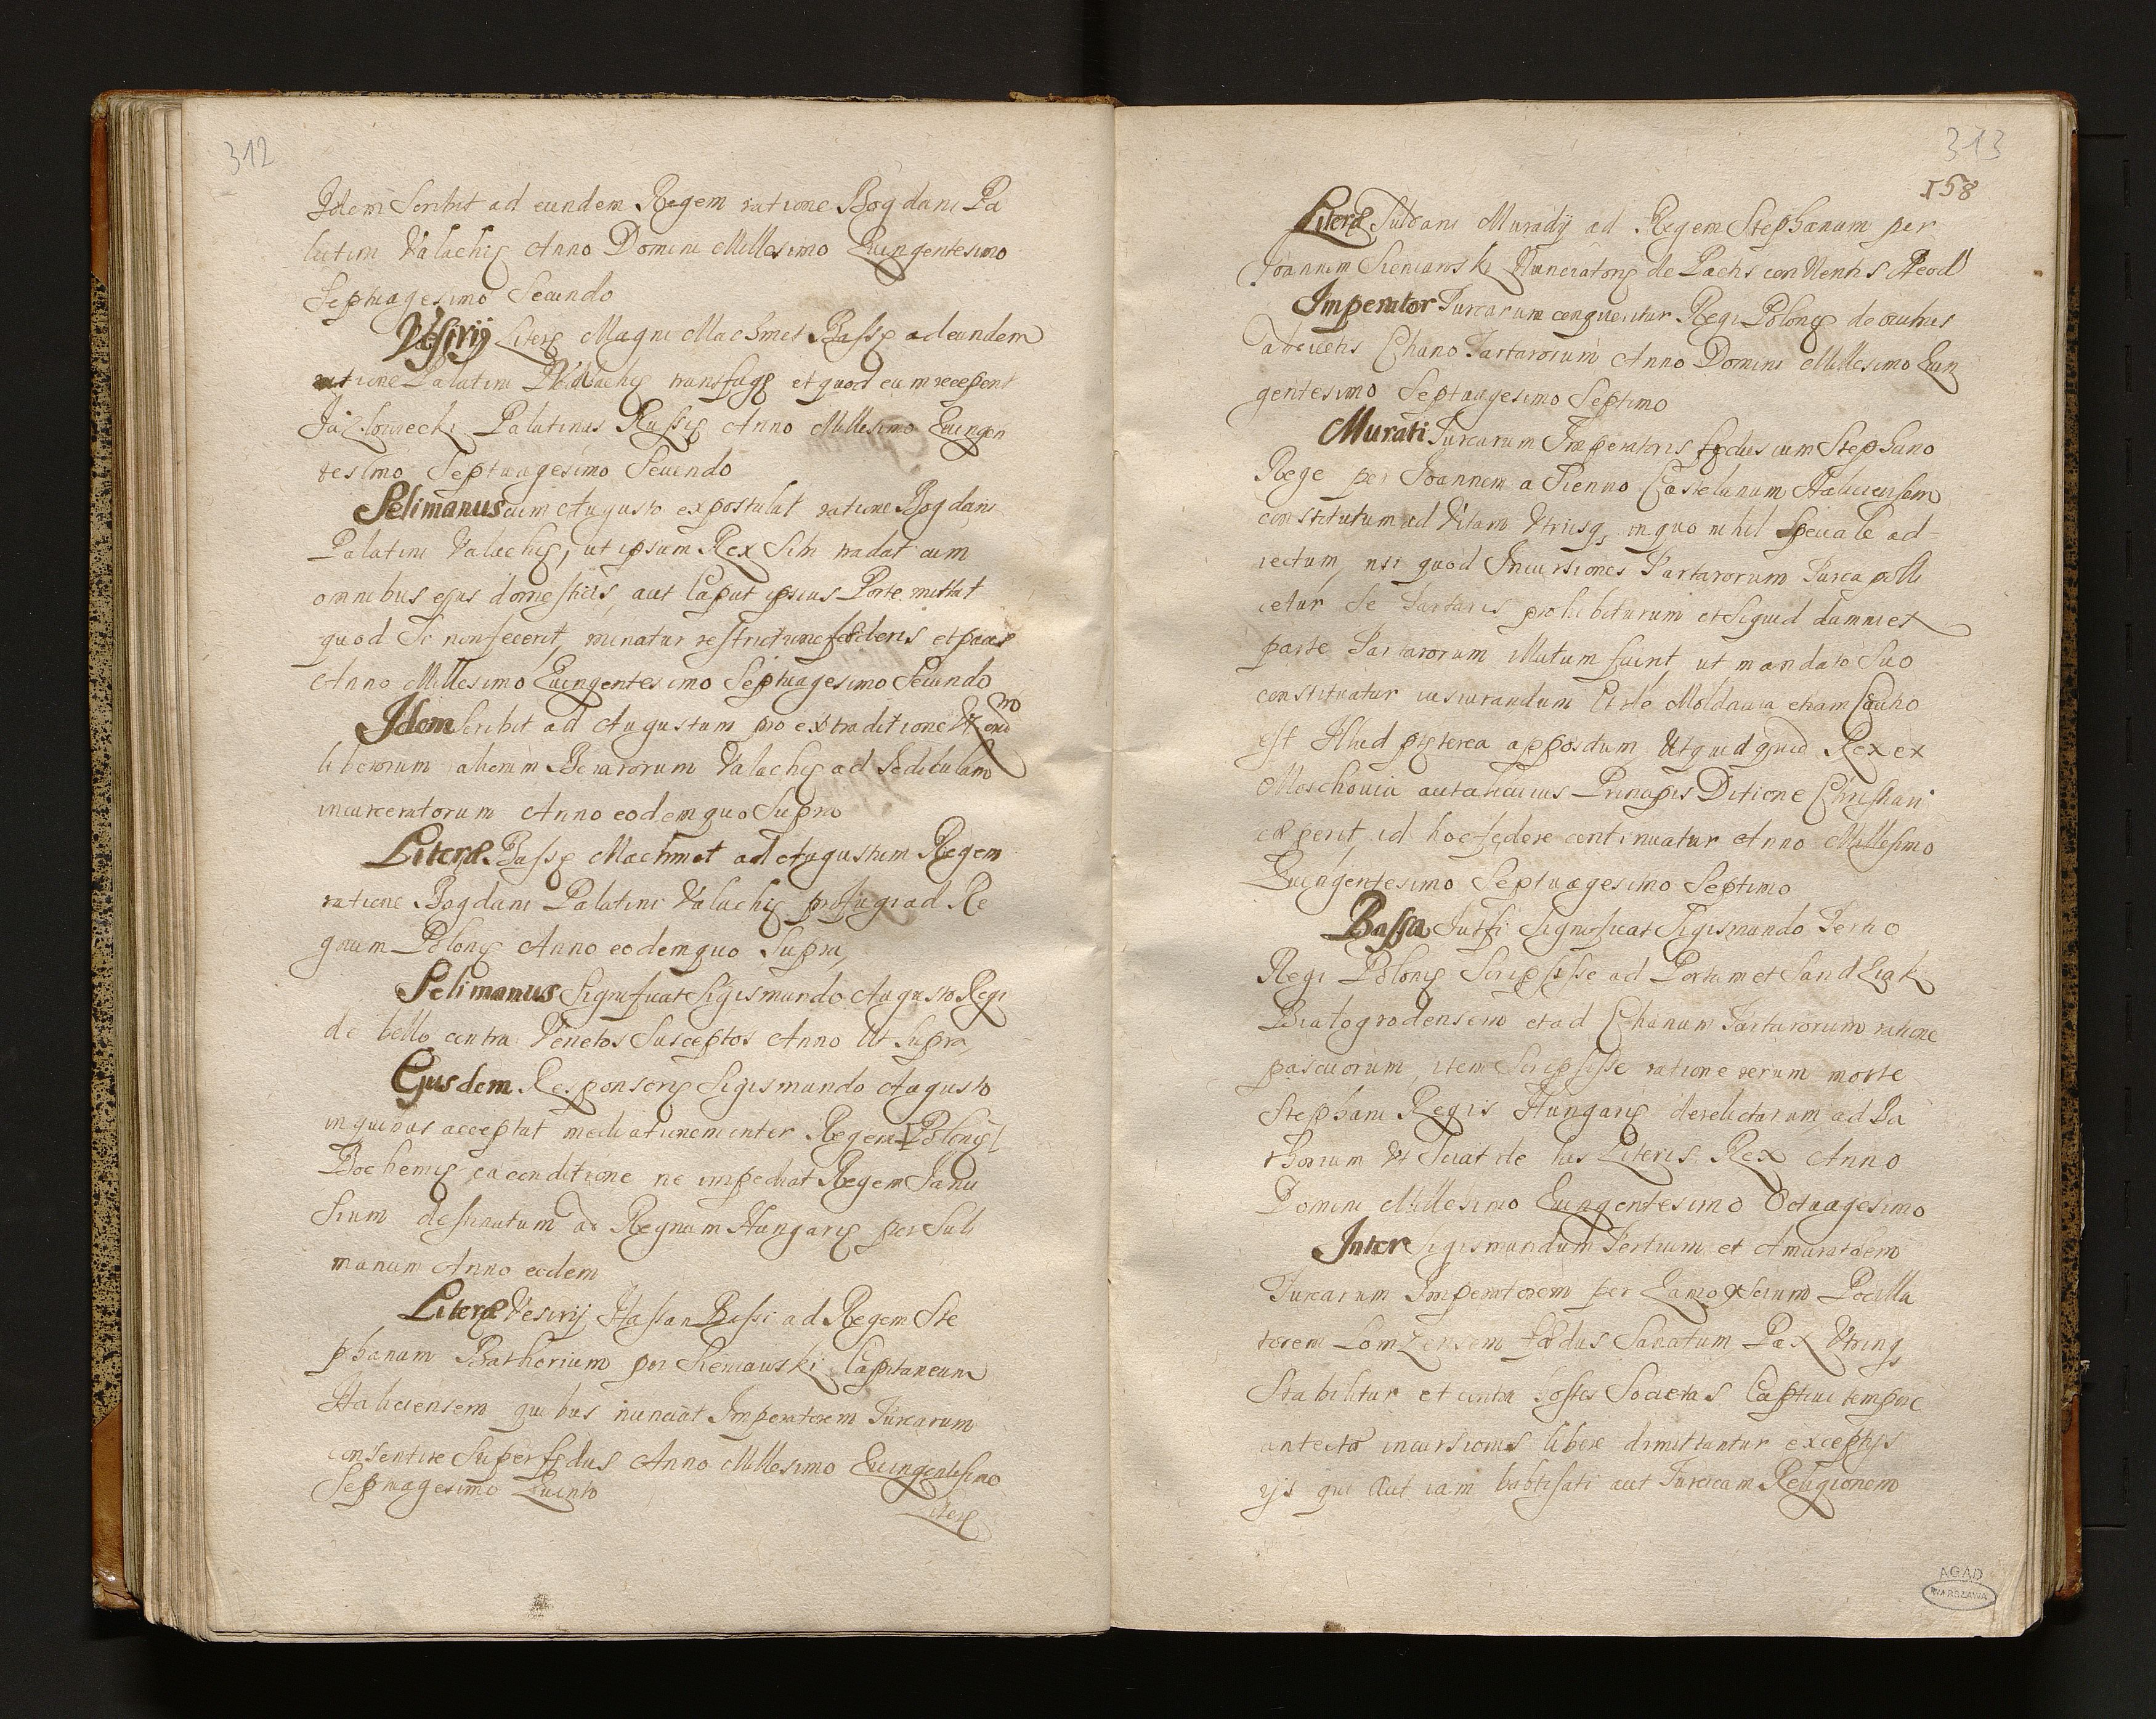 312
Idem Scribit ad eundem Regem ratione Bogdani Pa
latini Valachię Anno Domini Millesimo Quingentesimo
Septuagesimo Secundo
Vesirij Literę Magni Machmet Bassę ad eundem
ratione Palatini Valachię transfugę et quod eum receperit
Jazlowiecki Palatinus Russię Anno Millesimo Quingen
tesimo Septuagesimo Secundo
Selimanus cum Augusto expostulat ratione Bogdani
Palatini Valachię, ut ipsum Rex Sibi tradat cum
omnibus ejus domesticis, aut Caput ipsius Portę mittat
quod Si non fecerit, minatur restrictione foederis et pacis
Anno Millesimo Quingentesimo Septuagesimo Secundo
Idem Scribit ad Augustum pro extraditione
liberorum aliorum Boiarorum Valachię ad
incarceratorum Anno eodem quo Supra
Literę Bassę Machmet ad Augustum Regem
ratione Bogdani Palatini Valachię profugi ad Re
gnum Polonię Anno eodem quo Supra,
Selimanus Significat Sigismundo Augusto Regi
de bello contra Venetos Susceptos Anno Ut Supra,
Ejusdem Responsorię Sigismundo Augusto
in quibus acceptat mediationem inter Regem [Polonię]
Bochemię ea conditione ne impediat Regem Janu
sium destinatum ad Regnum Hungarię per Suli
manum Anno eodem
Literę Vesirij Hassan Bassi ad Regem Ste
phanum Bathorium per Sieniawski Capitaneum
Haliciensem quibus nunciat Imperatorem Turcarum
consentire Super fędus Anno Millesimo Quingentesimo
Septuagesimo Quinto
Literę
313
158
Literę Sultani Muradij ad Regem Stephanum per
Joannem Sieniawski Nunciatorię de Pactis conventis
Imperator Turcarum conqueritur Regi Polonię de
Chano Tartarorum Anno Domini Millesimo Quin
gentesimo Septuagesimo Septimo
Murati Turcarum Imperatoris fędus cum Stephano
Rege per Joannem a Sienno Castelanum Haliciensem
constitutum ad Vitam Utriusq, in quo nihil Speciale ad=
iectum, nisi quod Incursiones Tartarorum Turca polli
cetur Se Tartaris prohibiturum et Siquid damni ex
parte Tartarorum illatum fuerit, ut mandato Suo
constituatur iusiurandum Et de Moldauia etiam Cautio
est Illud pręterea appositum, Ut quid quid Rex ex
Moschouia aut alicuius Principis Ditione Christiani
cęperit, id hoc fędere continuatur Anno Millesimo
Quingentesimo Septuagesimo Septimo
Bassa Jussi Significat Sigismundo Tertio
Regi Polonię Scripsisse ad Portam et Sandziak
Bialogrodensem et ad Chanum Tartarorum ratione
pascuorum, item Scripsisse ratione rerum morte
Stephani Regis Hungarię derelictarum ad Ba
thorium Ut Sciat de his Literis Rex Anno
Domini Millesimo Quingentesimo Octuagesimo
Inter Sigismundum Tertium et Amurathem
Turcarum Imperatorem per Zamoyscium Pocilla
torem Lomzensem fędus Sanatum Pax Utrinq,
Stabilitur et contra hostes Societas Captiui tempore
incursionis libere dimittantur exceptijs
ijs qui Aut iam babtisati aut Turcicam Religionem
AGAD
WARSZAWA